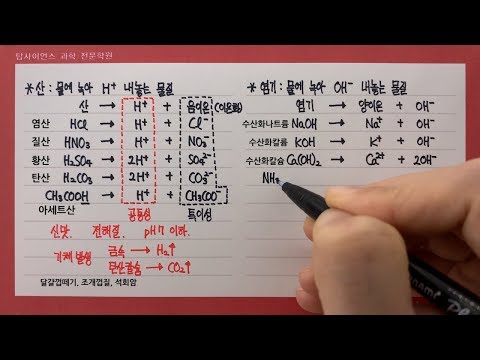 탑사이언스 과학 전문학원
*산 : 물에 녹아 H⁺ 내놓는 물질
산 → H⁺ + 음이온 (이온화)
염산 HCl → H⁺ + Cl⁻
질산 HNO₃ → H⁺ + NO₃⁻
황산 H₂SO₄ → 2H⁺ + SO₄²⁻
탄산 H₂CO₃ → 2H⁺ + CO₃²⁻
CH₃COOH → H⁺ + CH₃COO⁻
아세트산 공통성 특이성
신맛. 전해질. pH 7 이하.
기체 발생 금속 → H₂↑
탄산칼슘 → CO₂↑
달걀껍떼기, 조개껍질, 석회암
*염기 : 물에 녹아 OH⁻ 내놓는 물질
염기 → 양이온 + OH⁻
수산화나트륨 NaOH → Na⁺ + OH⁻
수산화칼륨 KOH → K⁺ + OH⁻
수산화칼슘 Ca(OH)₂ → Ca²⁺ + 2OH⁻
NH₃